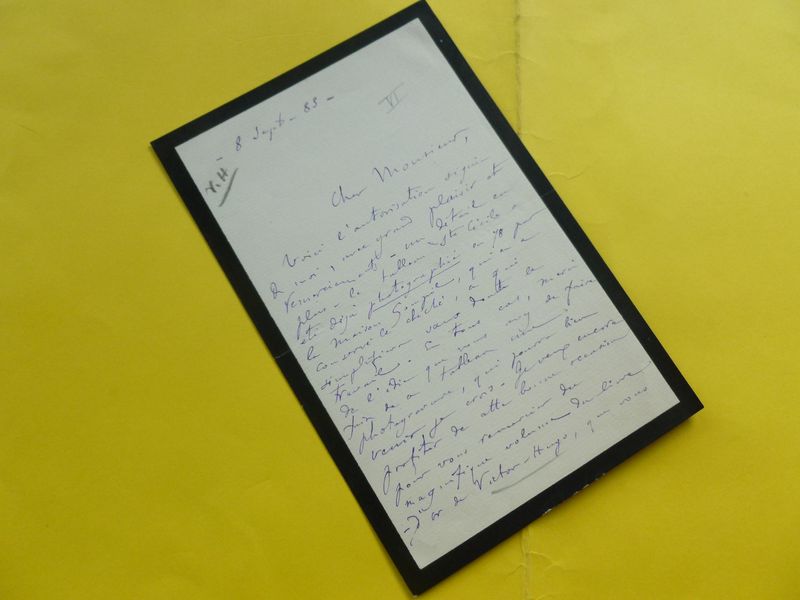 - 8 Sept. 83 -
VI
V.H
Cher Monsieur,
Voici l'autorisation signée
de moi, avec grand plaisir et
remerciements - un détail en
plus - le tableau Ste Cécile a
été déjà photographié en 78 par
la maison Goupil, qui en a
conservé le cliché, ce qui
simplifiera sans doute le
travail. En tous cas, merci
de l'idée que vous avez de faire
faire de ce tableau une
photogravure, qui pourra bien
venir je crois. Je veux encore
profiter de cette bonne occasion
pour vous remercier du
magnifique volume du livre
d'or de Victor-Hugo, que vous